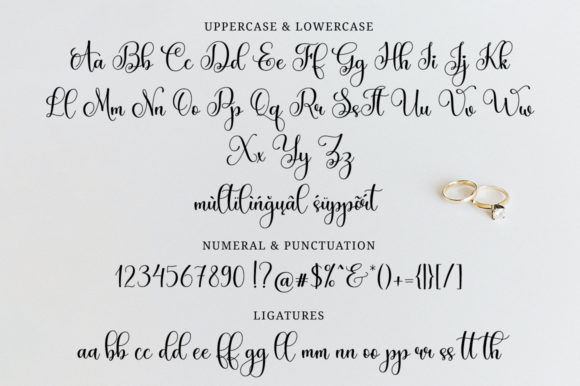 UPPERCASE & LOWERCASE
Aa Bb Cc Dd Ee Ff Gg Hh Ii Jj Kk
Ll Mm Nn Oo Pp Qq Rr Ss Tt Uu Vv Ww
Xx Yy Zz
mùltilińğụâl śüppõřt
NUMERAL & PUNCTUATION
1234567890 !?@#$%^&*()+={|}[/]
LIGATURES
aa bb cc dd ee ff gg ll mm nn oo pp rr ss tt th